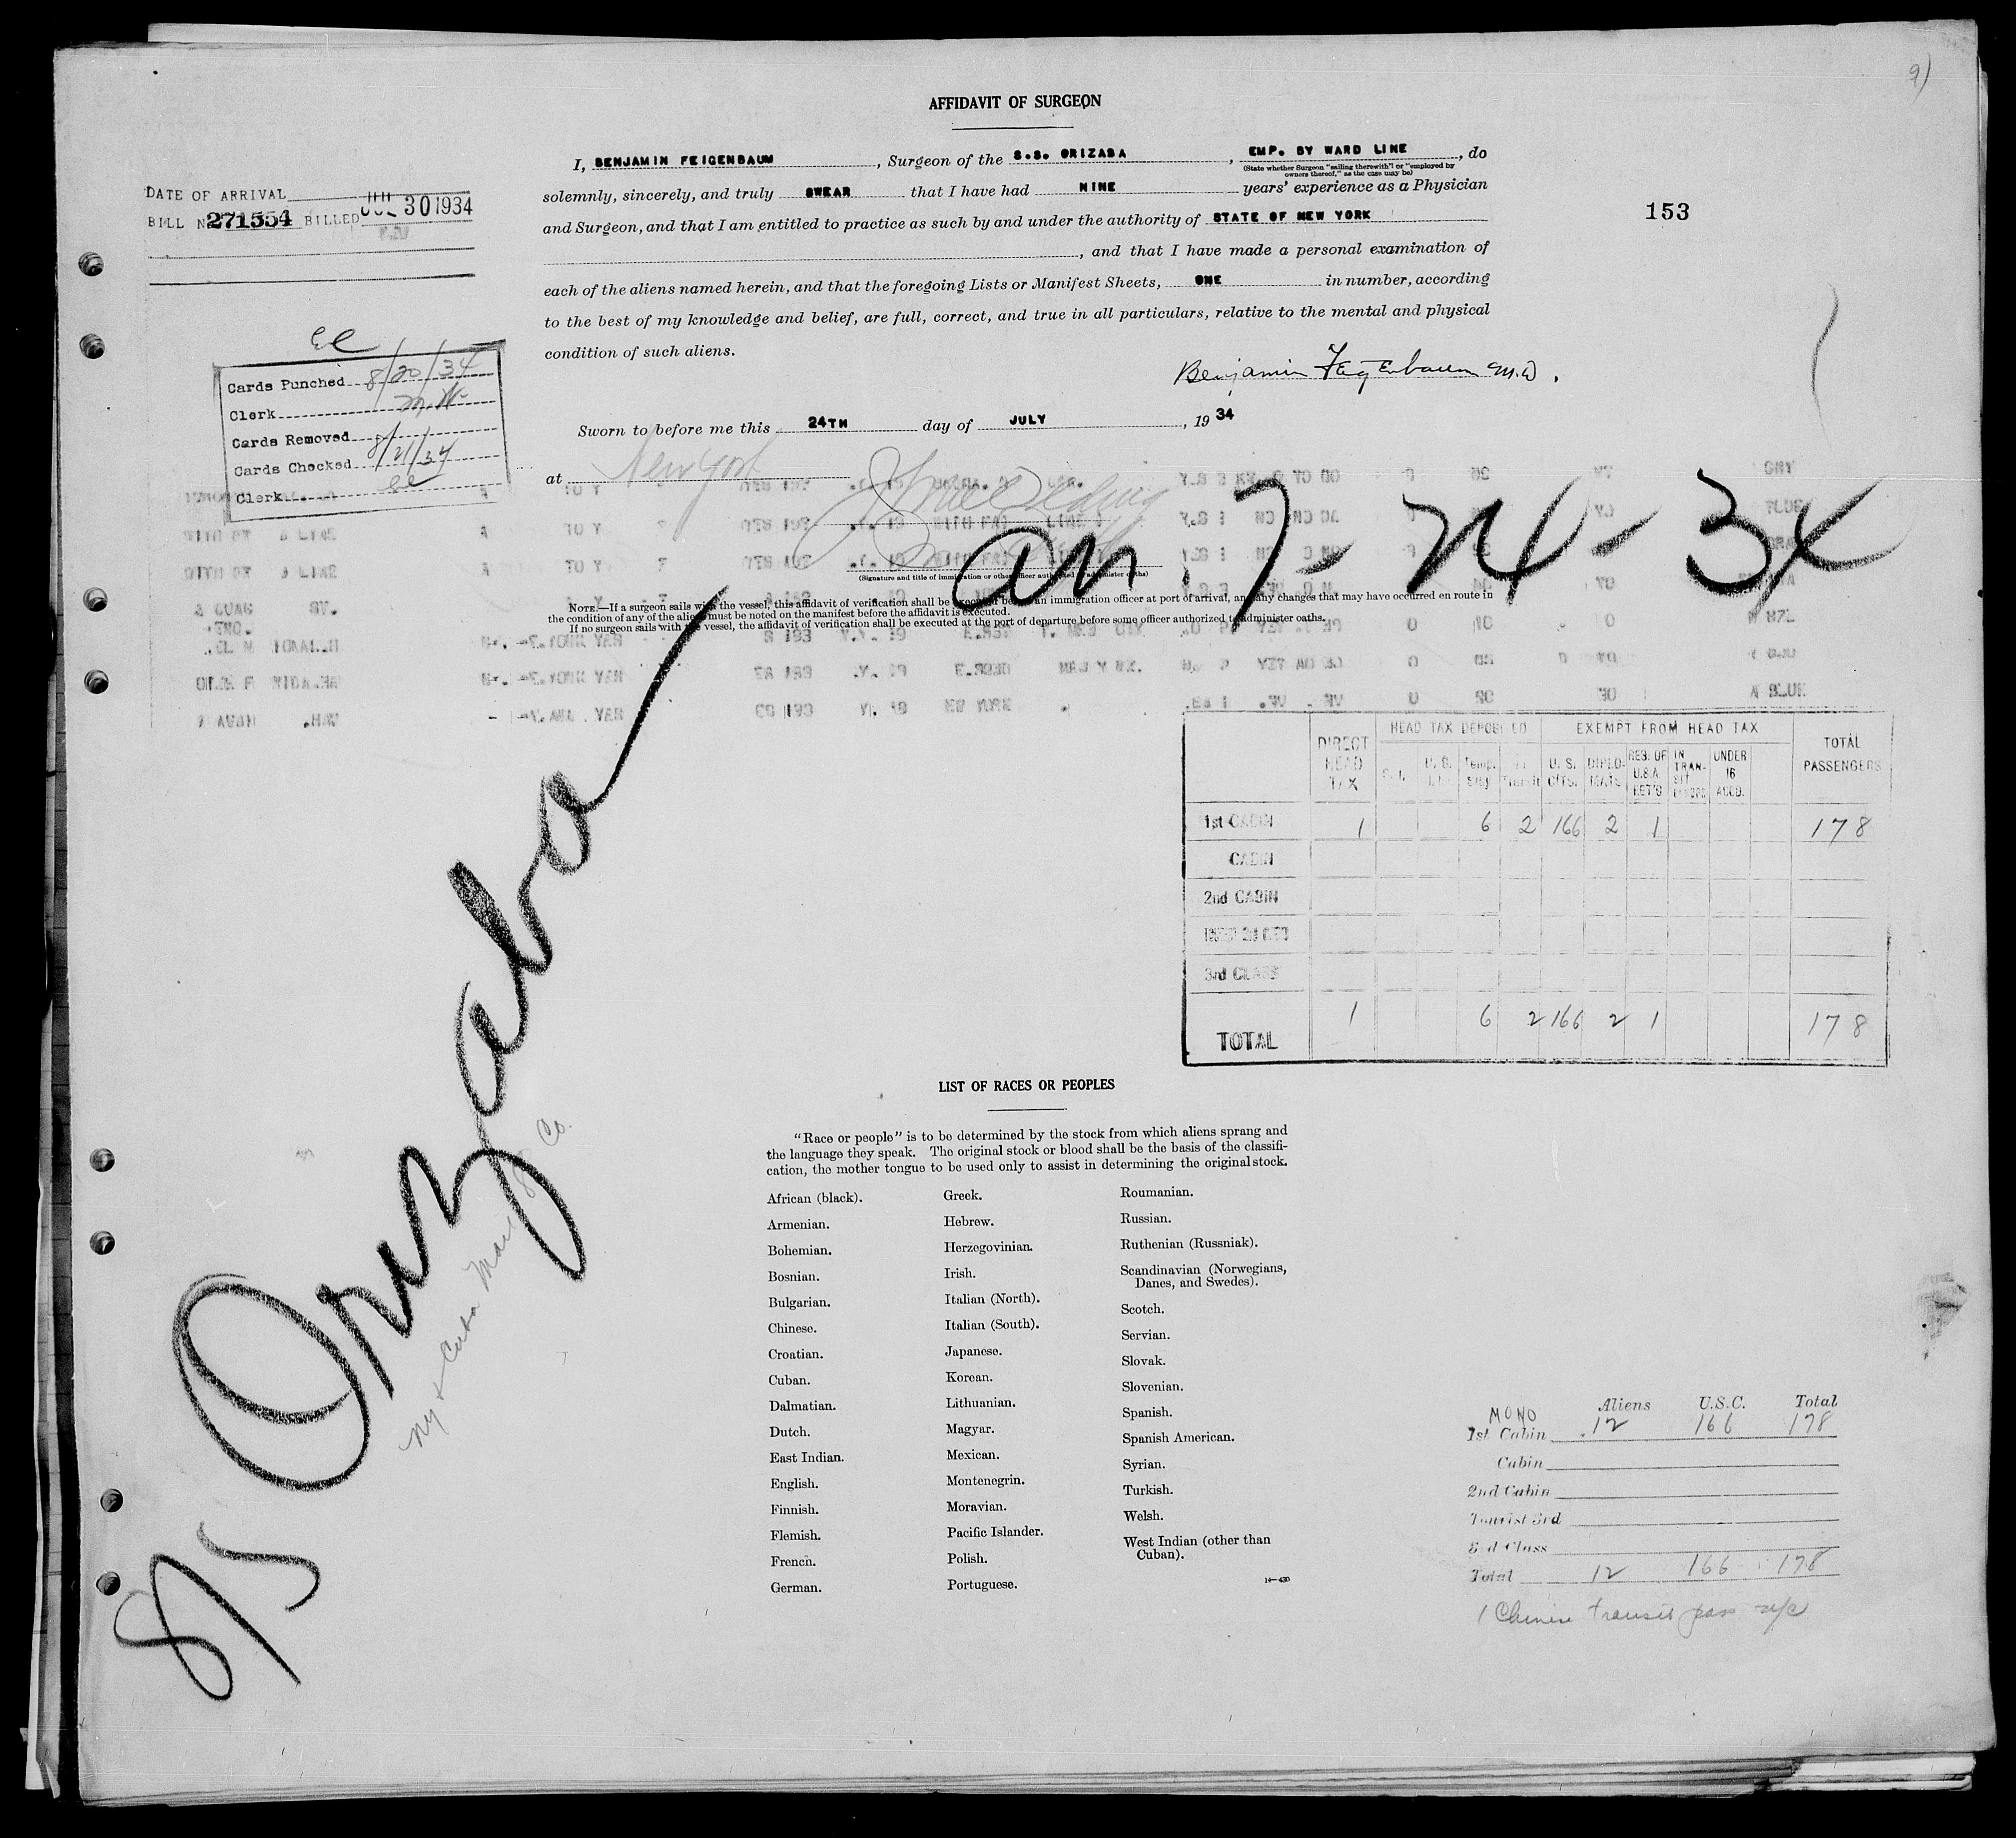 9)
AFFIDAVIT OF SURGEON
I, BENJAMIN FEIGENBAUM, Surgeon of the S.S. ORIZABA, EMP. BY WARD LINE, do
(State whether Surgeon "sailing therewith" or "employed by owners thereof," as the case may be)
solemnly, sincerely, and truly SWEAR that I have had NINE years' experience as a Physician
and Surgeon, and that I am entitled to practice as such by and under the authority of STATE OF NEW YORK
, and that I have made a personal examination of
each of the aliens named herein, and that the foregoing Lists or Manifest Sheets, ONE in number, according
to the best of my knowledge and belief, are full, correct, and true in all particulars, relative to the mental and physical
condition of such aliens.
Benjamin Feigenbaum M.D.
Sworn to before me this 24TH day of JULY, 19 34
at New York
(Signature and title of immigration or other officer authorized to administer oaths)
NOTE.—If a surgeon sails with the vessel, this affidavit of verification shall be executed before an immigration officer at port of arrival, and any changes that may have occurred en route in
the condition of any of the aliens must be noted on the manifest before the affidavit is executed.
If no surgeon sails with the vessel, the affidavit of verification shall be executed at the port of departure before some officer authorized to administer oaths.
DATE OF ARRIVAL
BILL No 271554 BILLED JUL 30 1934
153
Cards Punched 8/20/34
Clerk M.W.
Cards Removed
Cards Checked 8/21/34
Clerk
an 7-24-34
Orizaba
NY & Cuba Mail SS Co.
815
HEAD TAX DEPOSITED EXEMPT FROM HEAD TAX
DIRECT HEAD TAX U.S. Temp. Stay In Transit U.S. CITS. DIPLO-MATS RES. OF U.S.A. RET'G IN TRAN-SIT UNDER 16 ACCD. TOTAL PASSENGERS
1st CABIN 1 6 2 166 2 1 178
CABIN
2nd CABIN
3rd CLASS
TOTAL 1 6 2 166 2 1 178
LIST OF RACES OR PEOPLES
"Race or people" is to be determined by the stock from which aliens sprang and
the language they speak. The original stock or blood shall be the basis of the classifi-
cation, the mother tongue to be used only to assist in determining the original stock.
African (black).
Armenian.
Bohemian.
Bosnian.
Bulgarian.
Chinese.
Croatian.
Cuban.
Dalmatian.
Dutch.
East Indian.
English.
Finnish.
Flemish.
French.
German.
Greek.
Hebrew.
Herzegovinian.
Irish.
Italian (North).
Italian (South).
Japanese.
Korean.
Lithuanian.
Magyar.
Mexican.
Montenegrin.
Moravian.
Pacific Islander.
Polish.
Portuguese.
Roumanian.
Russian.
Ruthenian (Russniak).
Scandinavian (Norwegians,
Danes, and Swedes).
Scotch.
Servian.
Slovak.
Slovenian.
Spanish.
Spanish American.
Syrian.
Turkish.
Welsh.
West Indian (other than
Cuban).
14—430
Aliens U.S.C. Total
MONO
1st Cabin 12 166 178
Cabin
2nd Cabin
Tourist 3rd
3rd Class
Total 12 166 178
1 Chinese transit pass